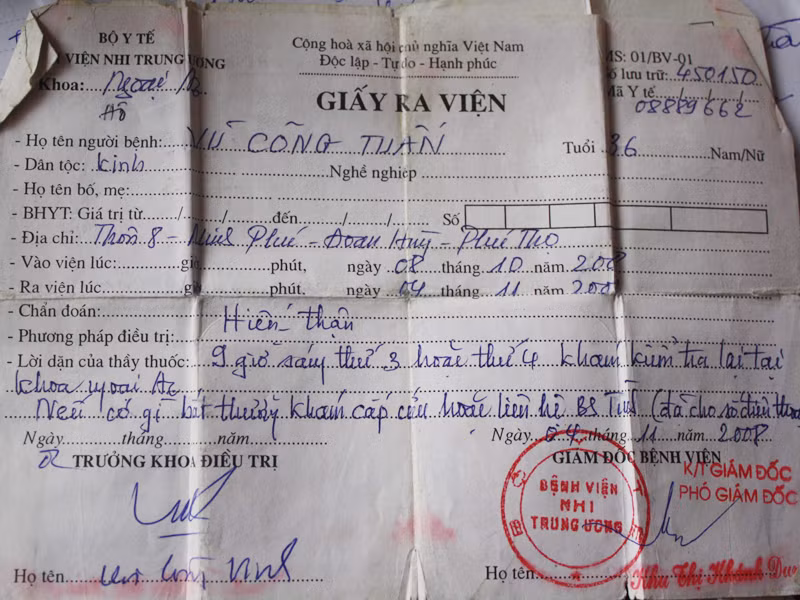 BỘ Y TẾ
VIỆN NHI TRUNG ƯƠNG
Khoa: Ngoại
Cộng hoà xã hội chủ nghĩa Việt Nam
Độc lập - Tự do - Hạnh phúc
MS: 01/BV-01
Số lưu trữ: 450150
Mã Y tế
08889662
GIẤY RA VIỆN
- Họ tên người bệnh: VŨ CÔNG TUẤN Tuổi 36 Nam/Nữ
- Dân tộc: Kinh Nghề nghiệp
- Họ tên bố, mẹ:
- BHYT: Giá trị từ....../....../......đến....../....../...... Số
- Địa chỉ: Thôn 8 - Minh Phú - Đoan Hùng - Phú Thọ
- Vào viện lúc:......giờ......phút, ngày 08 tháng 10 năm 200
- Ra viện lúc:......giờ......phút, ngày 04 tháng 11 năm 200
- Chẩn đoán: Hiến thận
- Phương pháp điều trị:
- Lời dặn của thầy thuốc: 9 giờ sáng thứ 3 hoặc thứ 4 khám kiểm tra lại tại
khoa ngoại
Nếu có gì bất thường khám cấp cứu hoặc liên hệ BS (đã cho số điện thoại
Ngày......tháng......năm......
Ngày 04 tháng 11 năm 2008
TRƯỞNG KHOA ĐIỀU TRỊ
GIÁM ĐỐC BỆNH VIỆN
K/T GIÁM ĐỐC
PHÓ GIÁM ĐỐC
BỆNH VIỆN
NHI
TRUNG ƯƠNG
Họ tên
Họ tên Khu Thị Khánh Du